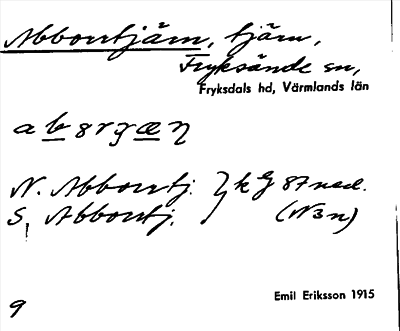 Abborrtjärn, tjärn,
Fryksände sn,
Fryksdals hd, Värmlands län
N. Abborrtj. } k G 87 ned.
S. Abborrtj. (N3n)
Emil Eriksson 1915
9